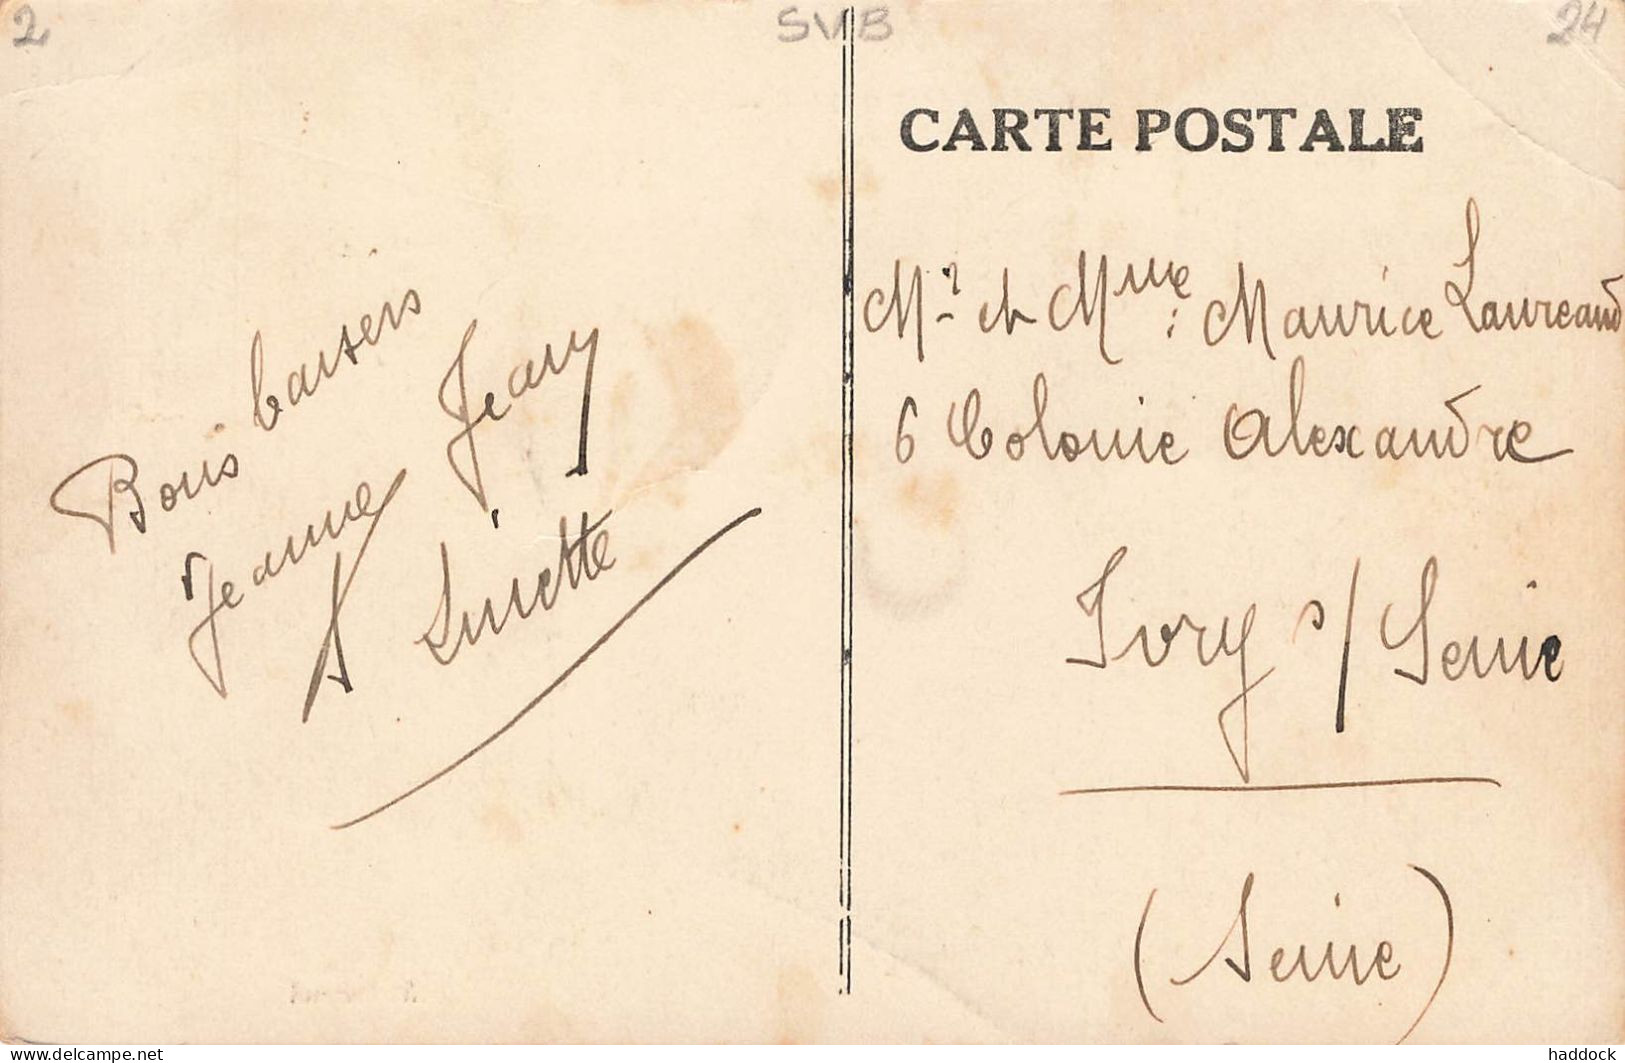 2
SVB
24
Bons baisers
Jeanne Jean
Linette
CARTE POSTALE
Mr et Mme : Maurice Laureand
6 Colonie Alexandre
Ivry s/ Seine
(Seine)
delcampe.net
haddock